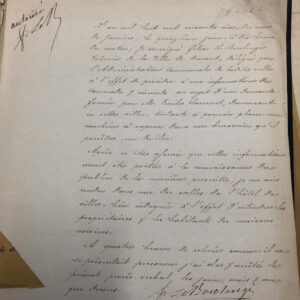 autorisé
L'an mil huit cent quatre vingt dix, du mois
de Janvier, le quinzième jour, à dix heures
du matin, Je soussigné Fidèle Le Boulengé
de la Ville de Dinant, délégué par
l'Administration communale de la dite ville
à l'effet de procéder à une information de
commodo & incommodo au sujet d'une demande
formée par Mr Emile demeurant
en cette ville, tendante à pouvoir placer une
machine à vapeur dans une brasserie qu'il
possède
Après m'être assuré que cette information
avait été portée à la connaissance du
public de la manière prescrite, je me suis
rendu dans une des salles de l'hôtel de
ville, lieu indiqué à l'effet d'entendre les
propriétaires & les habitants des maisons
voisines.
A quatre heures de relevée comme il ne
se présentait personne, j'ai clos & arrêté le
présent procès verbal les jour, mois & an
que dessus.
Le Boulengé